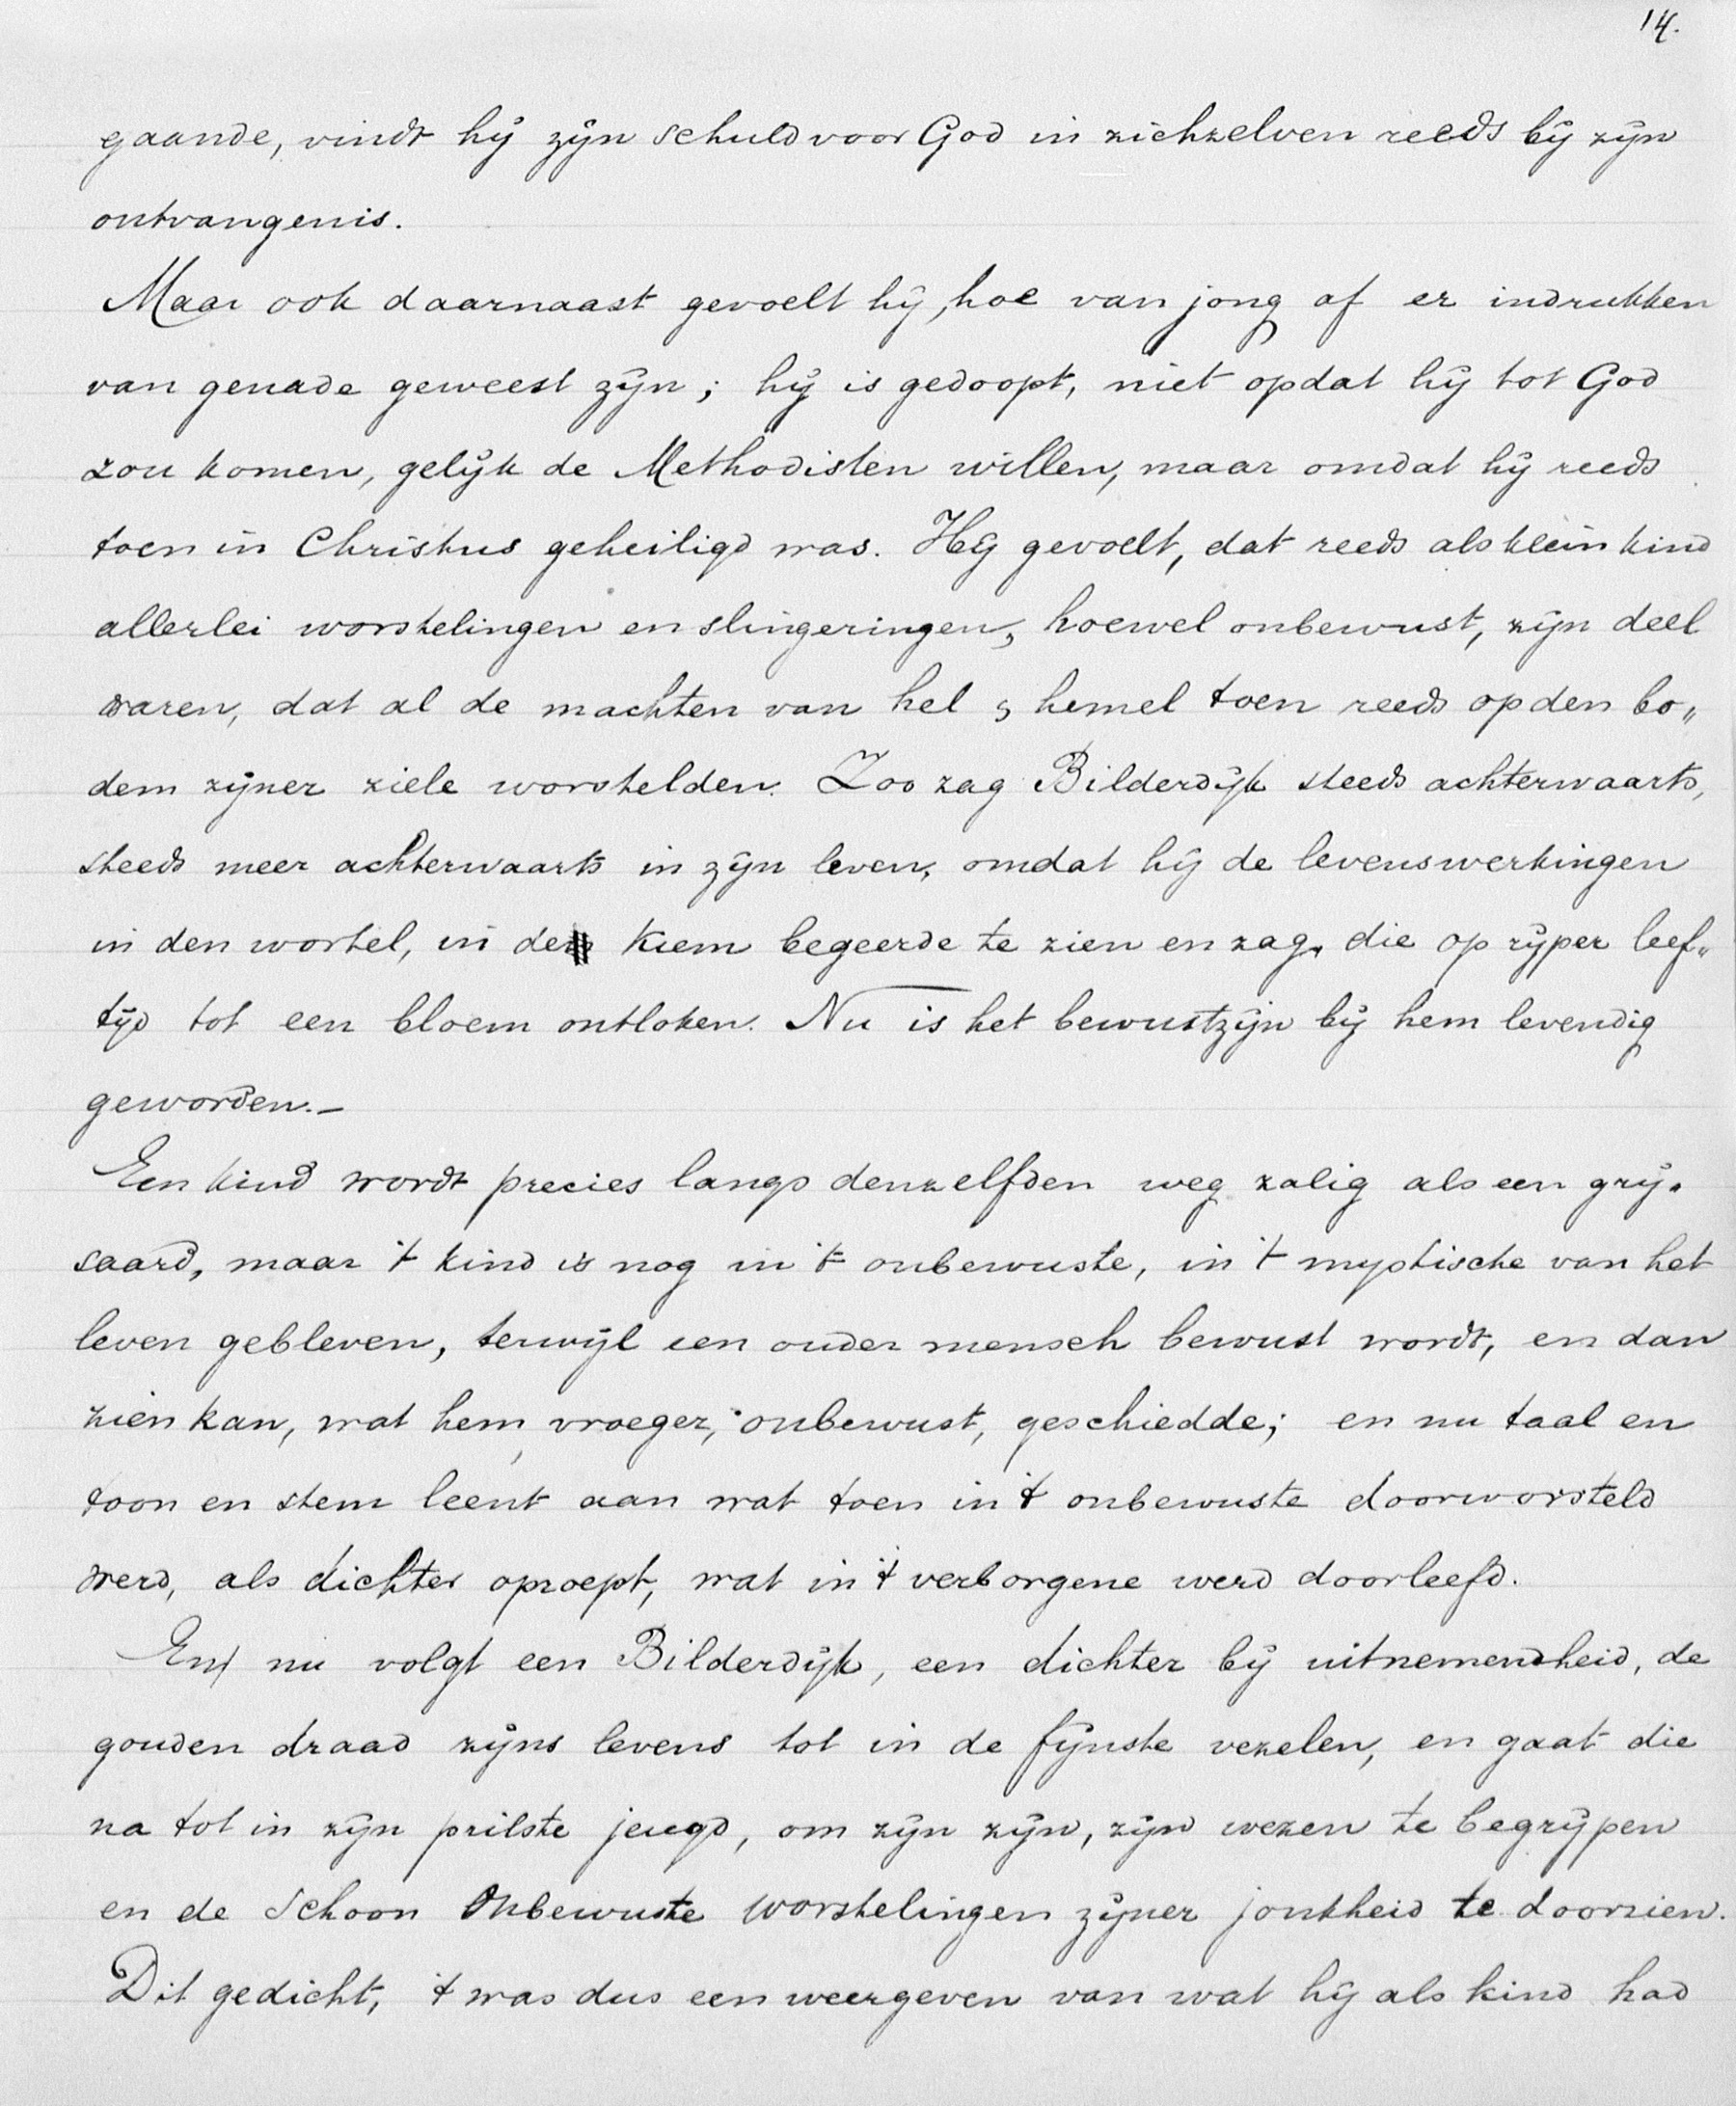 14.
gaande, vindt hij zijn schuld voor God in zichzelven reeds bij zijn
ontvangenis.
Maar ook daarnaast gevoelt hij, hoe van jong af er indrukken
van genade geweest zijn; hij is gedoopt, niet opdat hij tot God
zou komen, gelijk de Methodisten willen, maar omdat hij reeds
toen in Christus geheiligd was. Hij gevoelt, dat reeds als klein kind
allerlei worstelingen en slingeringen, hoewel onbewust, zijn deel
waren, dat al de machten van hel & hemel toen reeds op den bo„
dem zijner ziele worstelden. Zoo zag Bilderdijk steeds achterwaarts,
steeds meer achterwaarts in zijn leven, omdat hij de levenswerkingen
in den wortel, in de kiem begeerde te zien en zag, die op rijper leef„
tijd tot een bloem ontloken. Nu is het bewustzijn bij hem levendig
geworden.—
Een kind wordt precies langs denzelfden weg zalig als een grij„
saard, maar 't kind is nog in 't onbewuste, in 't mystische van het
leven gebleven, terwijl een ouder mensch bewust wordt, en dan
zien kan, wat hem, vroeger, onbewust, geschiedde; en nu taal en
toon en stem leent aan wat toen in 't onbewuste doorworsteld
werd, als dichter oproept, wat in 't verborgene werd doorleefd.
En nu volgt een Bilderdijk, een dichter bij uitnemendheid, de
gouden draad zijns levens tot in de fijnste vezelen, en gaat die
na tot in zijn prilste jeugd, om zijn zijn, zijn wezen te begrijpen
en de schoon onbewuste worstelingen zijner jonkheid te doorzien.
Dit gedicht, 't was dus een weergeven van wat hij als kind had